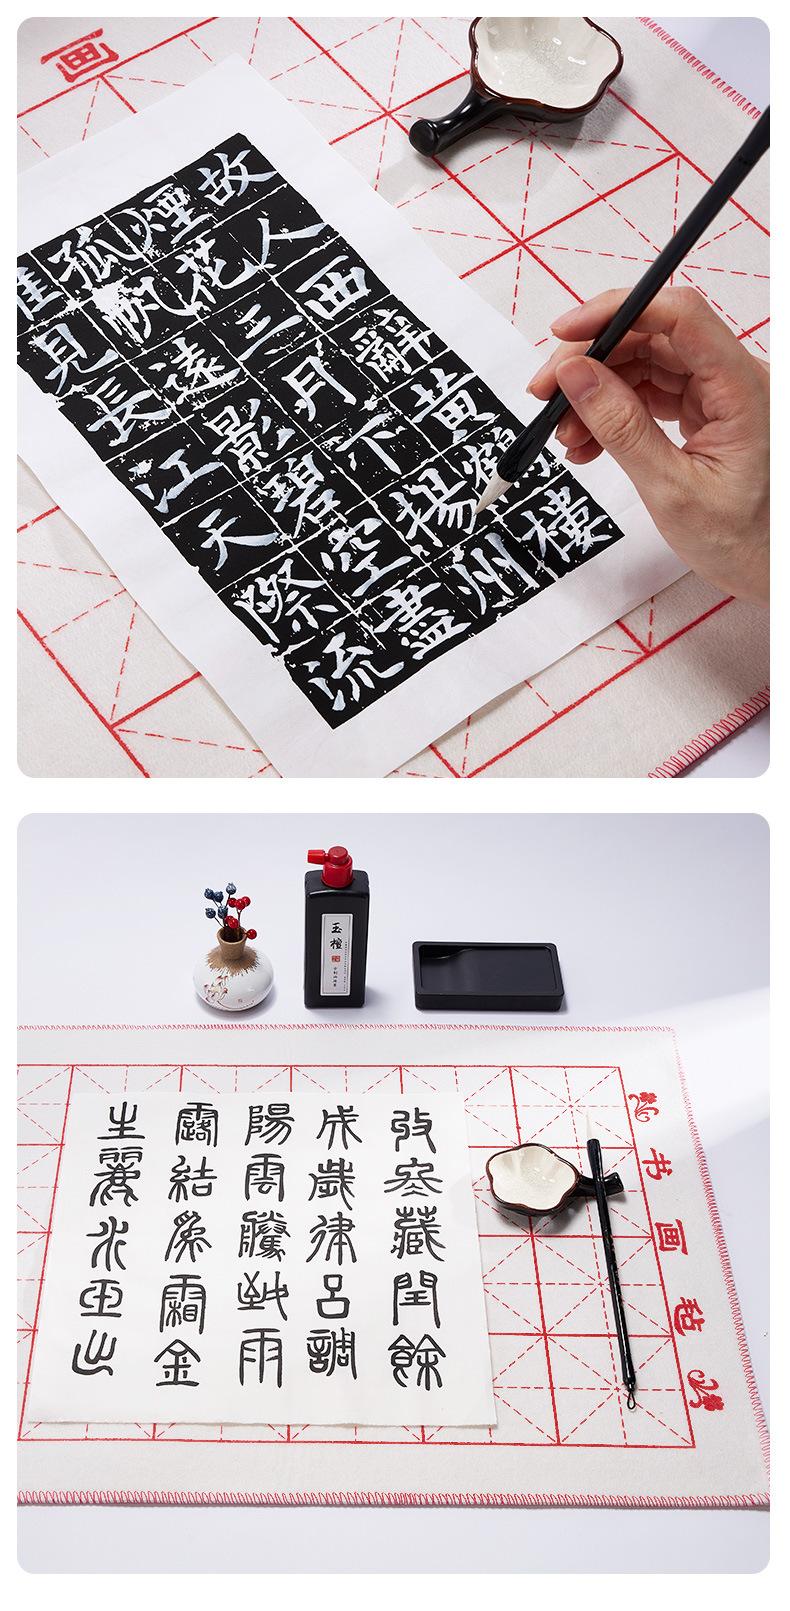 画
故人西辭黄鶴樓
煙花三月下揚州
孤帆遠影碧空盡
見長江天際流
玉檀
收冬藏閏餘
成歲律呂調
陽雲騰致雨
露結為霜金
生麗水玉出
书画毡